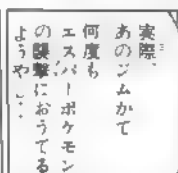 実際、
あのジムかて
何度も
エスパーポケモン
の襲撃におうてる
ようや…